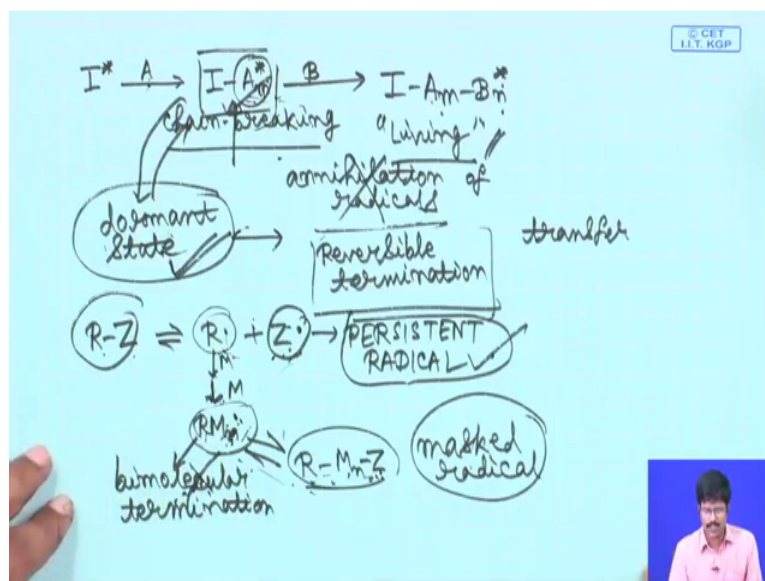 © CET
I.I.T. KGP
I* A→ I-A*m B→ I-Am-Bn*
chain-breaking "Living"
annihilation of
radicals
dormant
state → Reversible
termination
transfer
R-Z ⇌ R· + Z· → PERSISTENT
RADICAL
↓M
↓M
RMn·
R-Mn-Z
masked
radical
bimolecular
termination